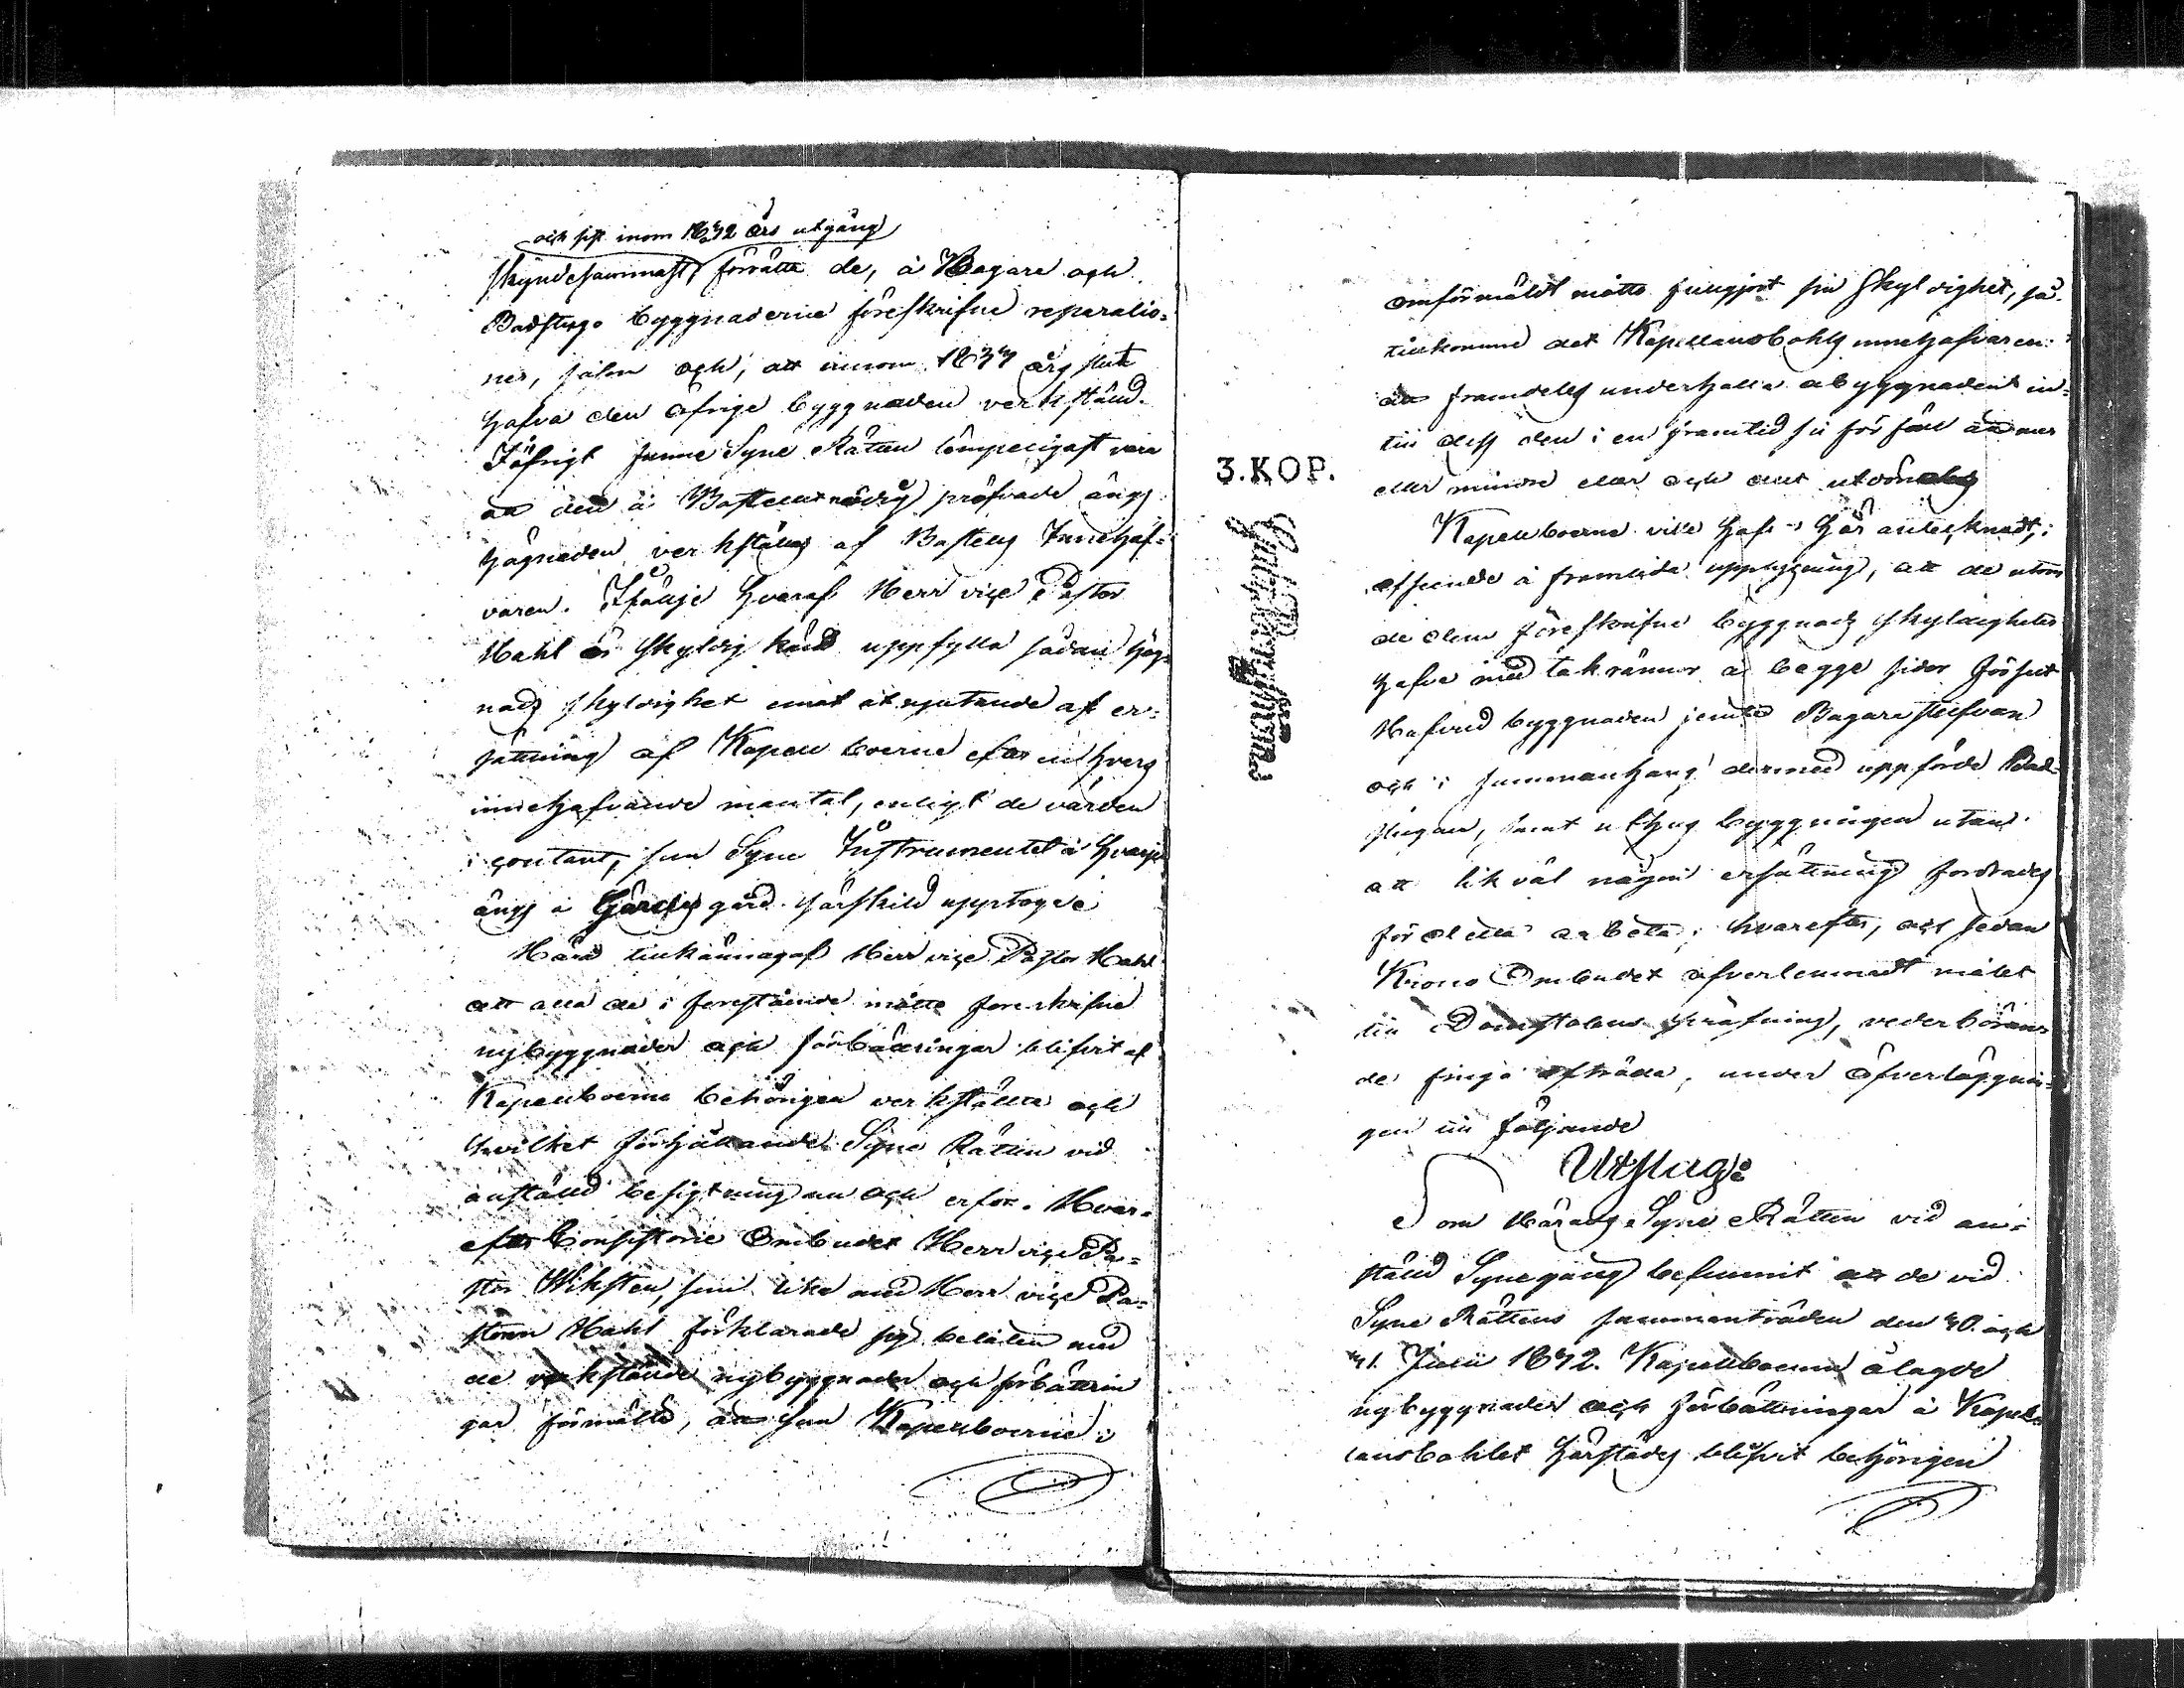 och sist inom 1842 års utgång
skyndesammast förrätta de, å Bagare och
Badstugo byggnaderne föreskrifne reparatio-
ner, såsom och, att innom 1844 års slut
hafva den öfrige byggnaden verkställd.
I öfrigt funne Syne Rätten lämpeligast vara
att den å Bostellet nödig pröfvade ängs
hägnaden verkställes af Bostells Innehaf-
varen. I följe hvaraf Herr vice Pastor
Mahl är skyldig känd uppfylla sådan häg-
nads skyldighet emot åtnjutande af er-
sättning af Kapellboerne efter en hvars
innehafvande mantal, enligt de värden
i contant, som Syne Instrumentet å hvarje
ängs gärdesgård särskild upptager
Härå tillkännagaf Herr vice Pastor Mahl
att alla de i forestående måtto foreskrifne
nybyggnader och förbättringar blifvit af
Kapellboerne behörigen verkställte och
hvilket förhållande Syne Rätten vid
anställd besigtning nu och erfor. Hvar-
efter Consistorie Ombudet Herr vice Pa-
stor Wiksten, som lika med Herr vice Pa-
storn Mahl förklarade sig belåten med
de verkställde nybyggnader och förbättrin
gar förmälte, att som Kapellboerne i
omförmäldt måtto fullgjort sin skyldighet, så
tillkomme det Kapellansbohls innehafvaren
att framdeles underhålla åbyggnaden in-
till dess den i en framtid
eller mindre eller och alt utdömdes
3.KOP.
Kapellboerne ville hafva här antecknadt,
afseende å framtida uppbyggning, att de utom
de dem föreskrifne byggnads skyldigheter
hafva med takrännor å begge sidor försedt
Hufvud byggnaden jemte Bagare stufvan
och i sammanhang dermed uppförde Bad-
stugan, samt uthus byggningen utan
att likväl någon ersättning fordrades
för detta arbete; hvarefter, och sedan
Krono Ombudet öfverlemnadt målet
till Domstolens pröfning, vederböran-
de fingo afträda, under öfverläggnin-
gen till följande
Utslag:
Som Härads Syne Rätten vid an-
ställd Synegång befunnit att de vid
Syne Rättens sammanträden den 30. och
31. Juli 1842. Kapellboerne ålagde
nybyggnader och förbättringar å Kapel-
lansbohlet härstädes blifvit behörigen